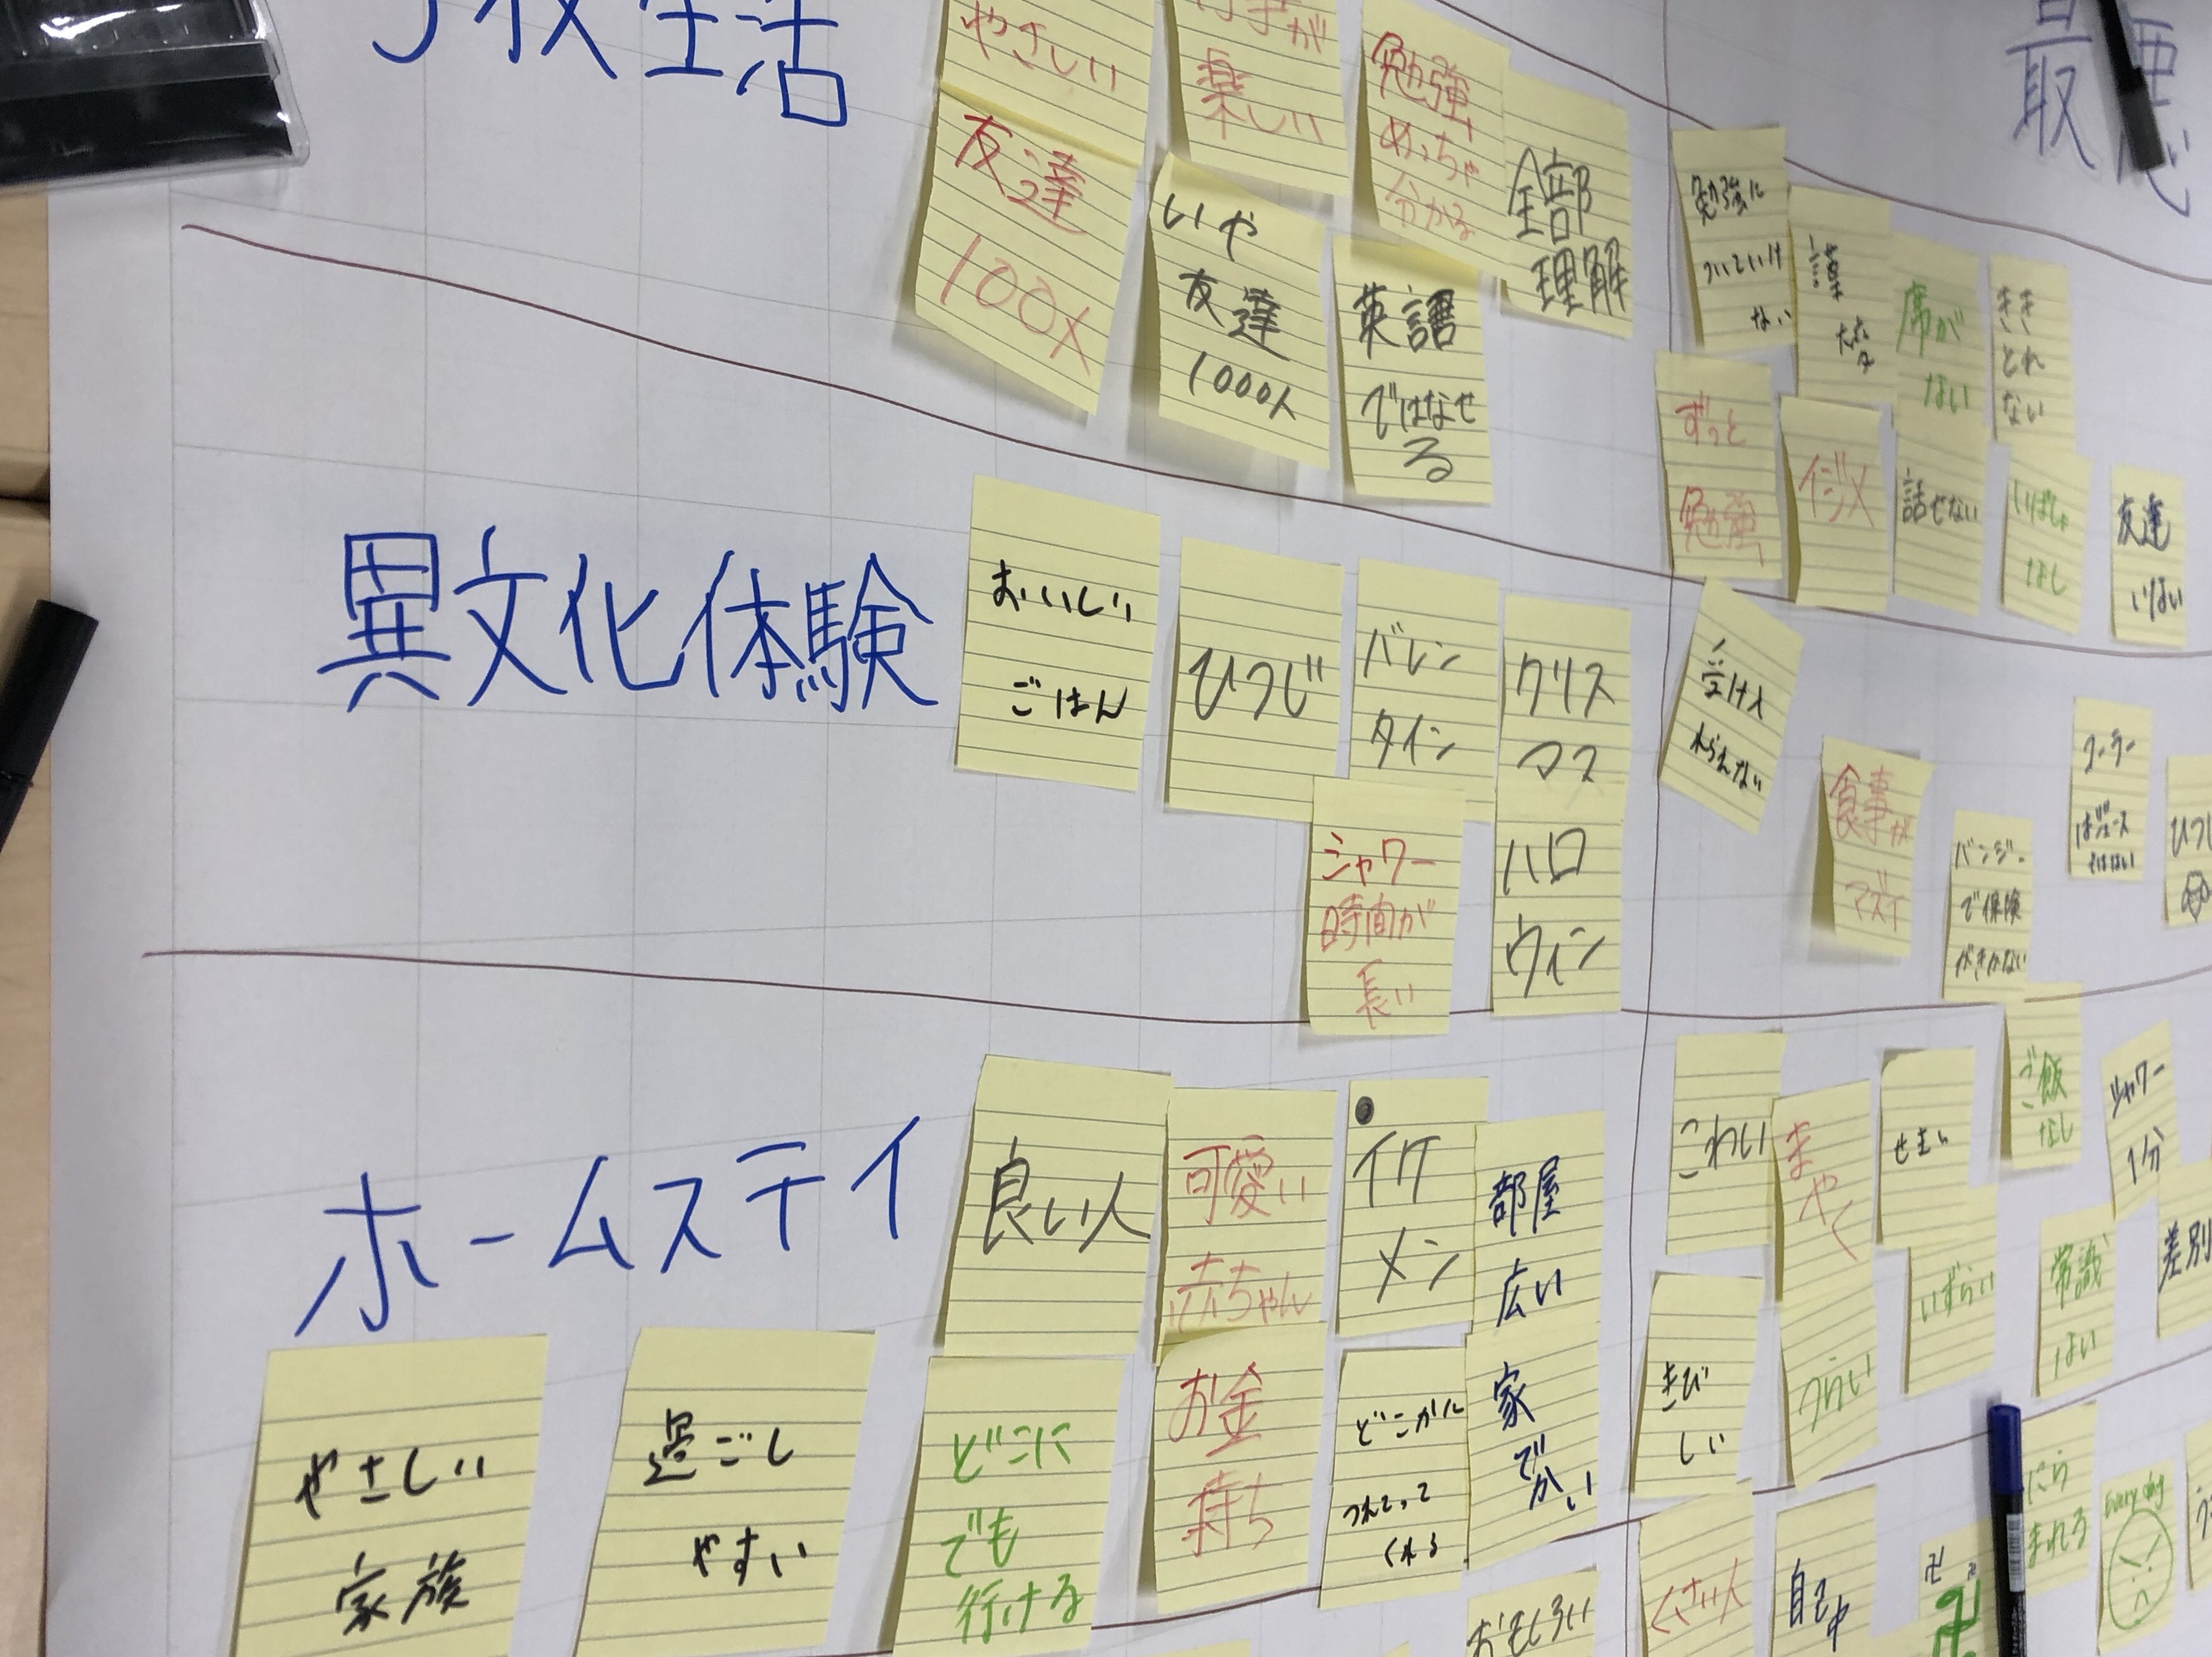 校生活
最悪
やさしい
が
楽しい
勉強
めっちゃ
分かる
全部
理解
友達
100人
いや
友達
1000人
英語
ではなせ
る
勉強に
ついていけ
ない
席が
ない
きき
とれ
ない
ずっと
勉強
イジメ
話せない
なし
友達
いない
異文化体験
おいしい
ごはん
ひつじ
バレン
タイン
クリス
マス
シャワー
時間が
長い
ハロ
ウィン
受け入
れられない
食事が
マズイ
バンジー
で保険
がきかない
ホームステイ
良い人
可愛い
赤ちゃん
イケ
メン
部屋
広い
こわい
まやく
せまい
ご飯
なし
シャワー
1分
やさしい
家族
過ごし
やすい
どこに
でも
行ける
お金
持ち
どこかに
つれてって
くれる
家
でかい
きび
しい
つらい
いずらい
常識
ない
差別
おもしろい
くさい人
自己中
にら
まれる
Every day